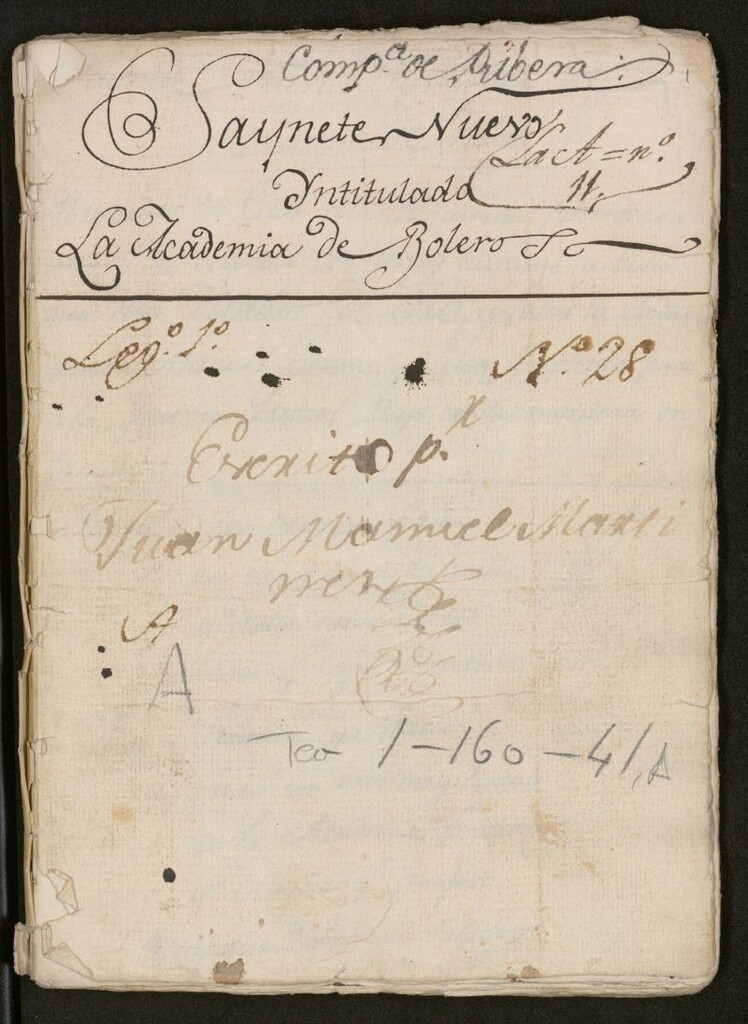 Compª de Ribera.
Saynete Nuevo
Yntitulado
La Academia de Boleros
nº.
11.
Legº. 1º.
Nº 28
Escrito p.r
Juan Manuel Marti
nez
A
A
Tea 1-160-41, A